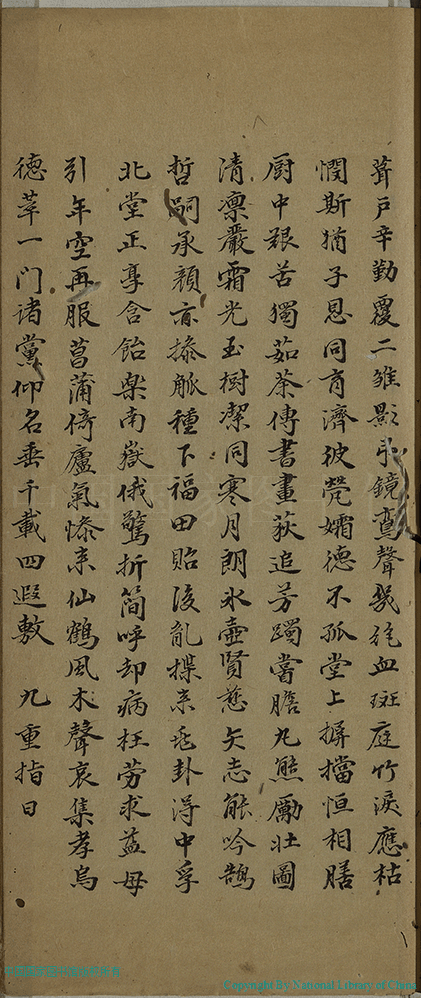 葺戶辛勤覆二雛影弔鏡鸞聲幾絶血斑庭竹淚應枯
憫斯猶子恩同育濟彼煢孀德不孤堂上摒擋恒相膳
厨中艱苦獨茹荼傳書畫荻追芳躅嘗膽丸熊勵壯圖
清凛嚴霜光玉樹潔同寒月朗氷壺賢慈矢志能吟鵠
哲嗣承顔亦掾種下福田貽後亂揲卦得中孚
北堂正享含飴樂南嶽俄驚折簡呼却病枉勞求益母
引年空再服菖蒲倚廬氣慘仙鶴風木聲哀集孝烏
德萃一門諸黨仰名垂千載四遐敷 九重指日
Copyright By National Library of China